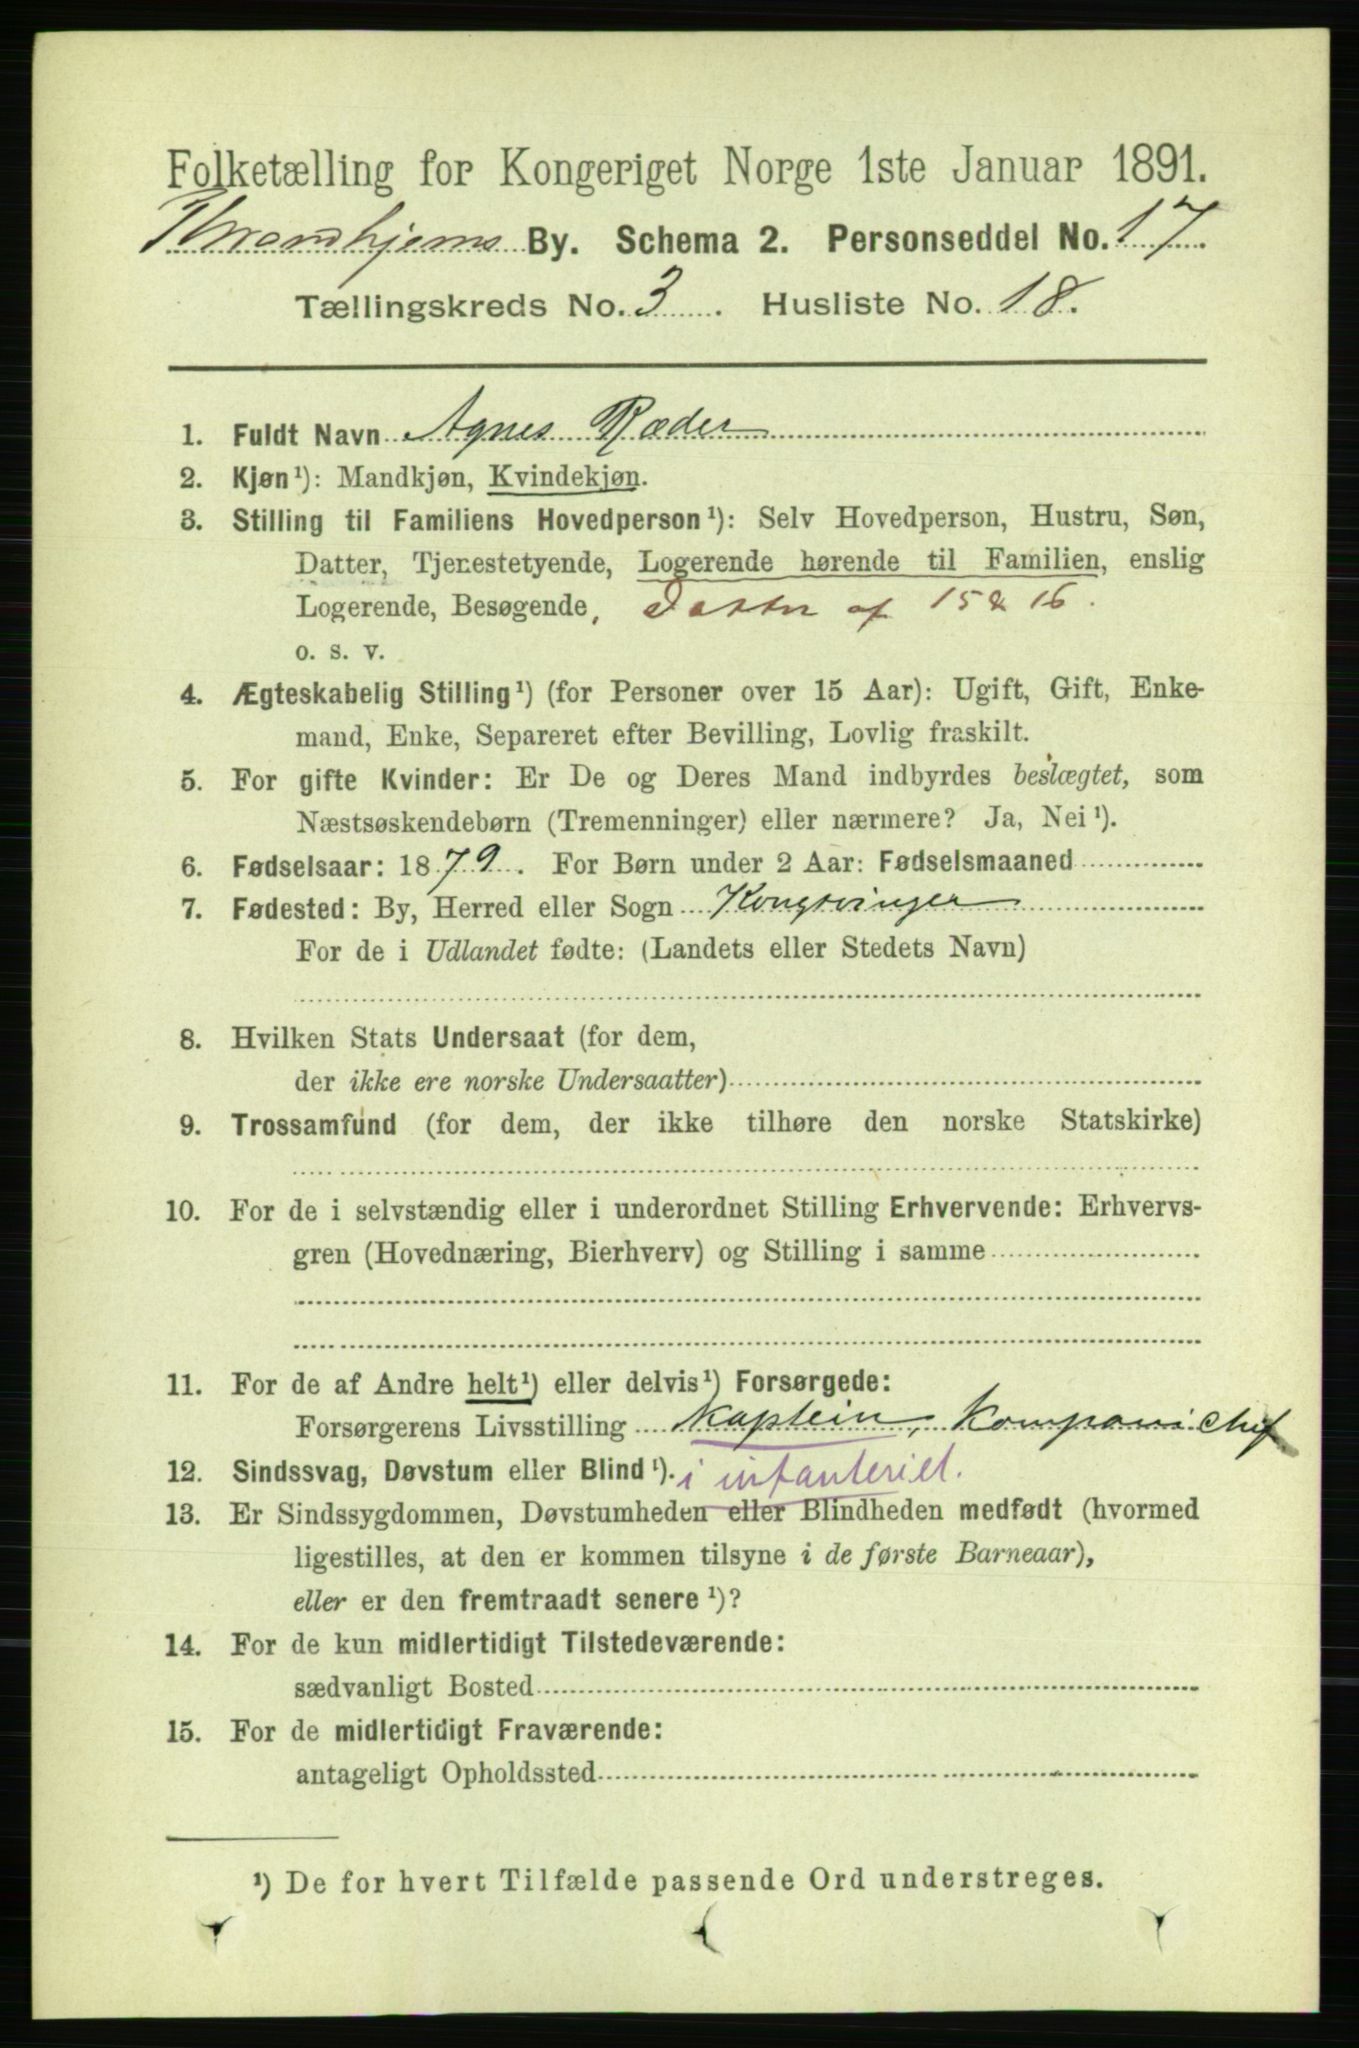 Folketælling for Kongeriget Norge 1ste Januar 1891.
Throndhjems By. Schema 2. Personseddel No. 17
Tællingskreds No. 3. Husliste No. 18.
1. Fuldt Navn Agnes Ræder
2. Kjøn¹): Mandkjøn, Kvindekjøn.
3. Stilling til Familiens Hovedperson¹): Selv Hovedperson, Hustru, Søn,
Datter, Tjenestetyende, Logerende hørende til Familien, enslig
Logerende, Besøgende, Datter af 15 & 16.
o. s. v.
4. Ægteskabelig Stilling¹) (for Personer over 15 Aar): Ugift, Gift, Enke-
mand, Enke, Separeret efter Bevilling, Lovlig fraskilt.
5. For gifte Kvinder: Er De og Deres Mand indbyrdes beslægtet, som
Næstsøskendebørn (Tremenninger) eller nærmere? Ja, Nei¹).
6. Fødselsaar: 1879. For Børn under 2 Aar: Fødselsmaaned
7. Fødested: By, Herred eller Sogn Kongsvinger
For de i Udlandet fødte: (Landets eller Stedets Navn)
8. Hvilken Stats Undersaat (for dem,
der ikke ere norske Undersaatter)
9. Trossamfund (for dem, der ikke tilhøre den norske Statskirke)
10. For de i selvstændig eller i underordnet Stilling Erhvervende: Erhvervs-
gren (Hovednæring, Bierhverv) og Stilling i samme
11. For de af Andre helt¹) eller delvis¹) Forsørgede:
Forsørgerens Livsstilling Kaptein, Kompanichef
12. Sindssvag, Døvstum eller Blind¹). i infanteriet.
13. Er Sindssygdommen, Døvstumheden eller Blindheden medfødt (hvormed
ligestilles, at den er kommen tilsyne i de første Barneaar),
eller er den fremtraadt senere¹)?
14. For de kun midlertidigt Tilstedeværende:
sædvanligt Bosted
15. For de midlertidigt Fraværende:
antageligt Opholdssted
¹) De for hvert Tilfælde passende Ord understreges.